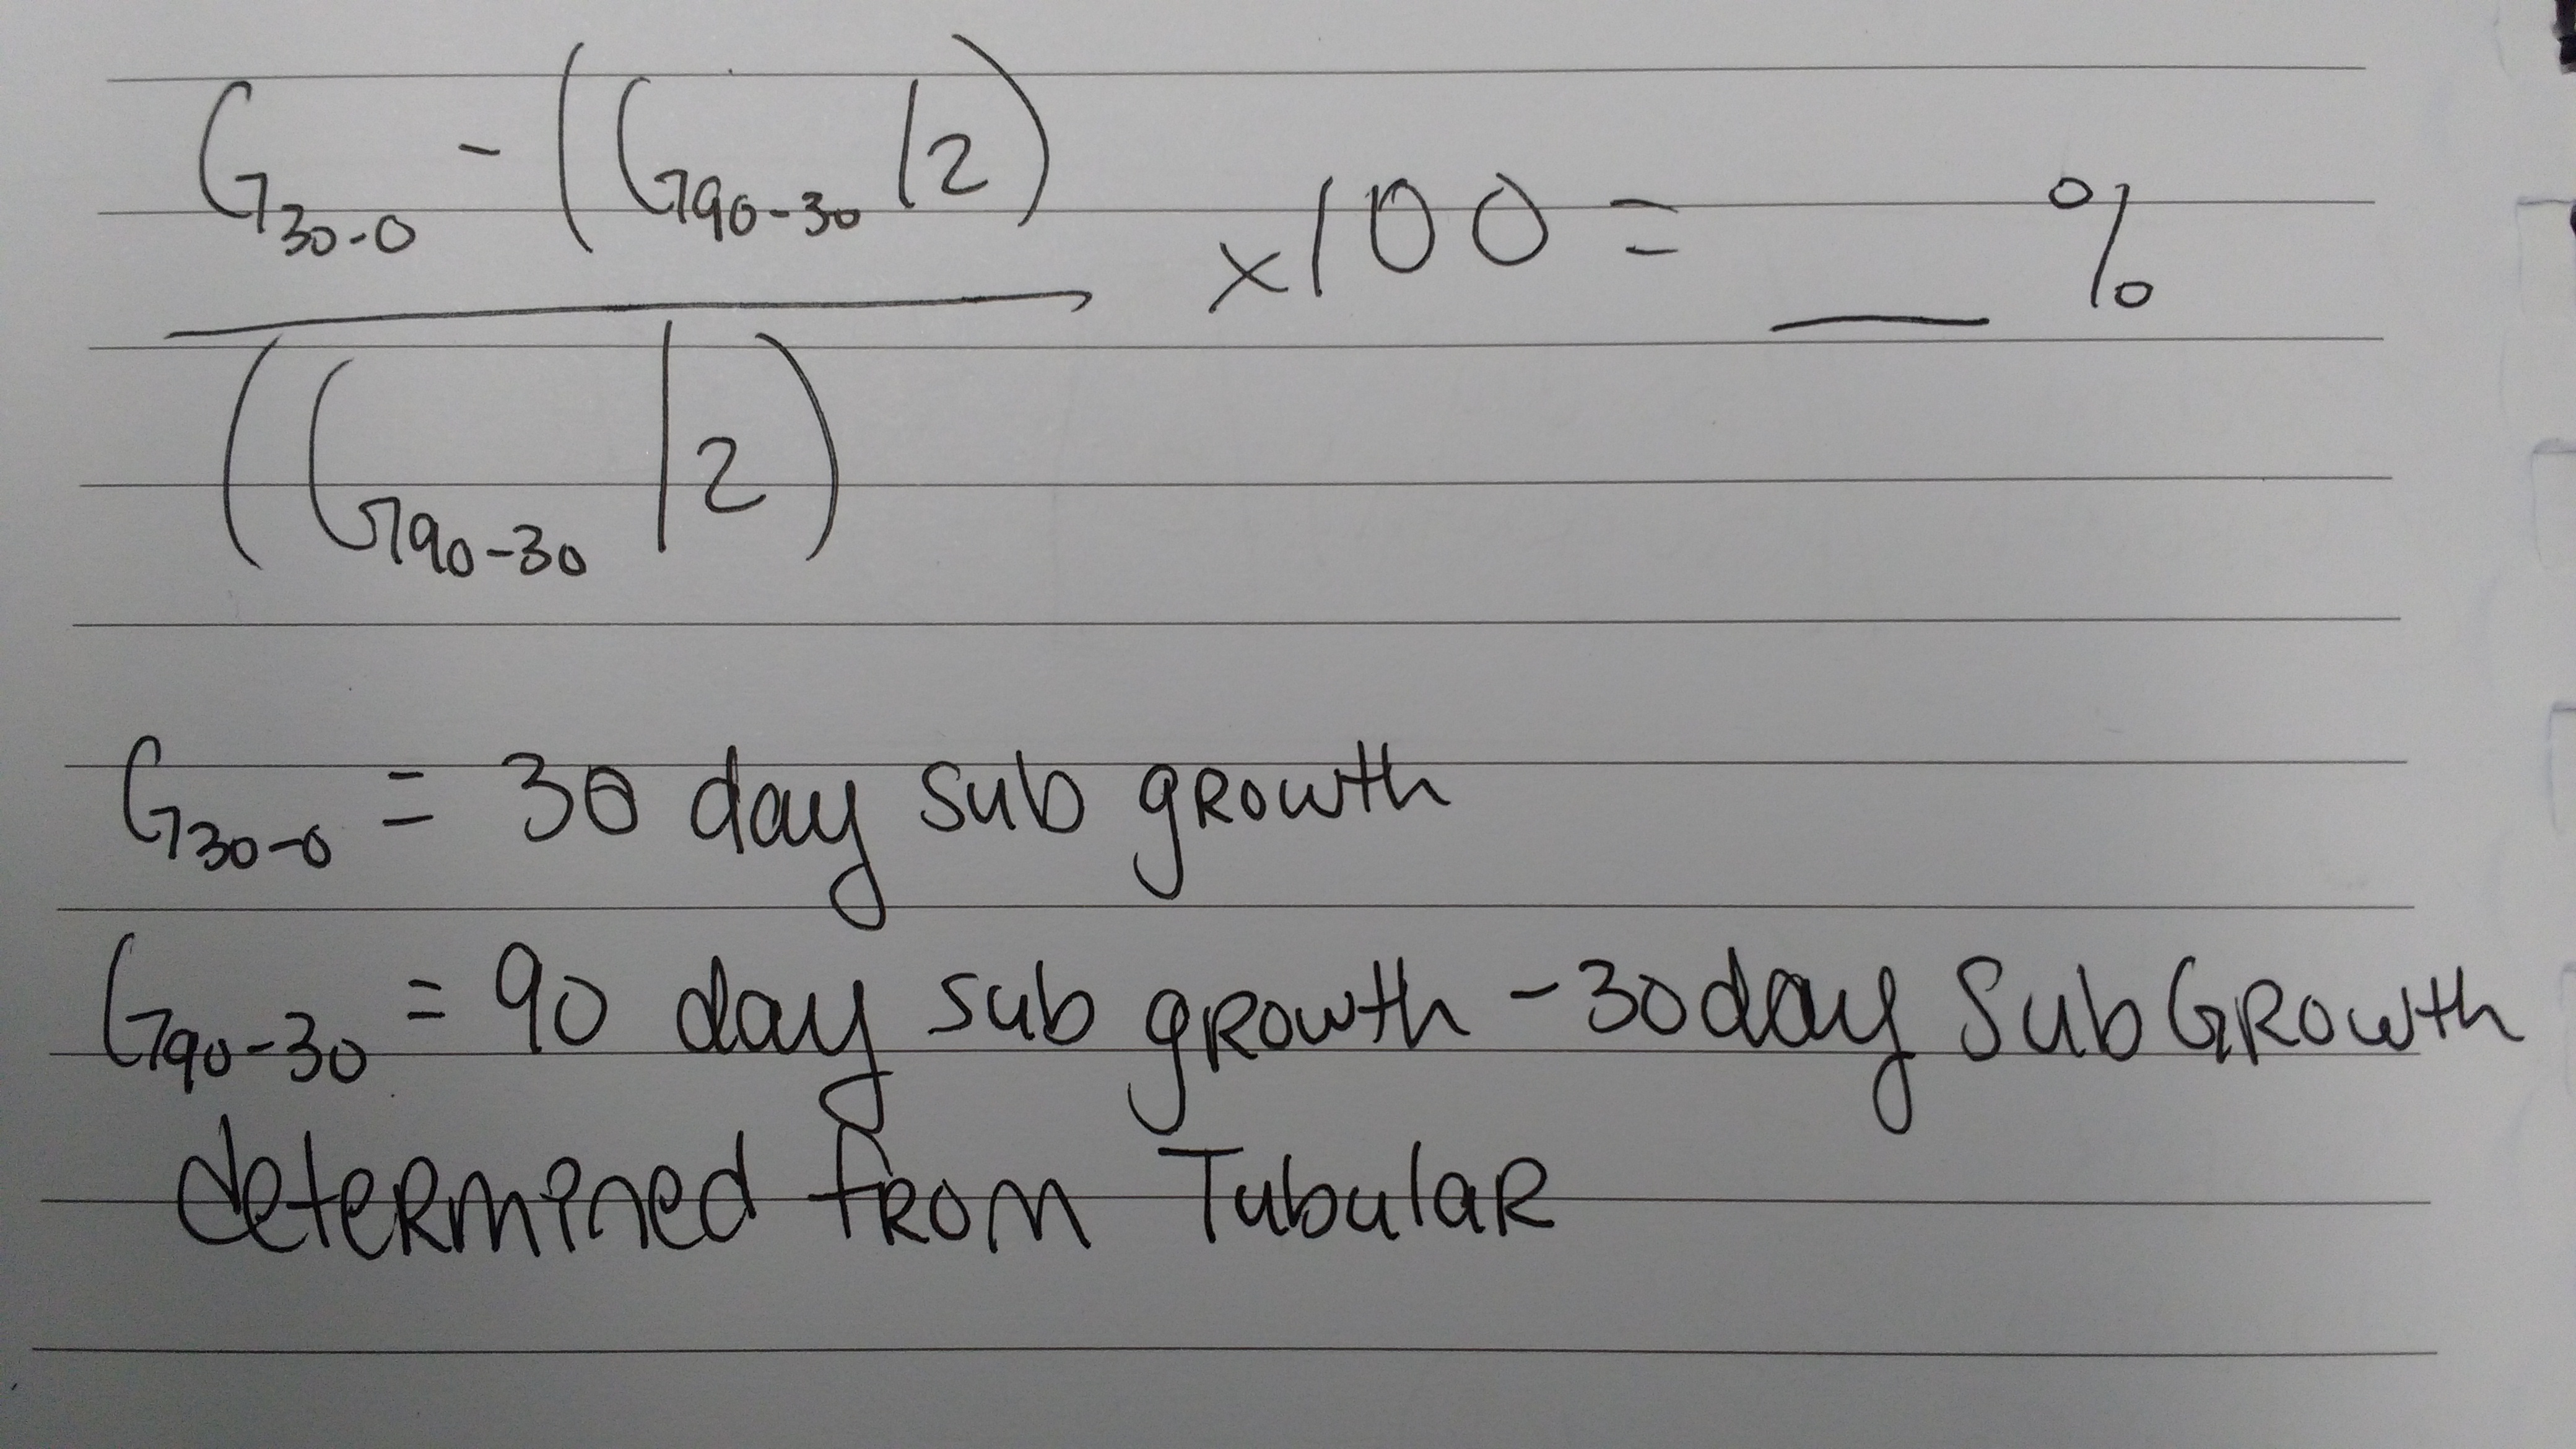 G30-0 - (G90-30 /2)
x100 = __ %
(G90-30 /2)
G30-0 = 30 day sub gRowth
G90-30 = 90 day sub gRowth - 30 day Sub GRowth
deteRmined fRom TubulaR